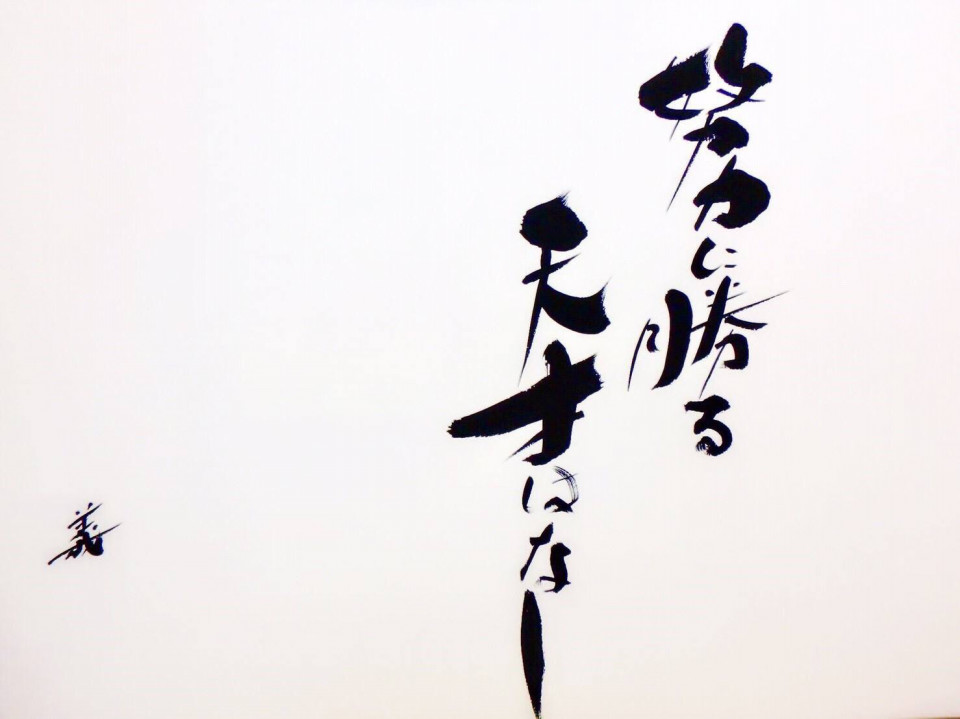 努力に勝る
天才はなし
義